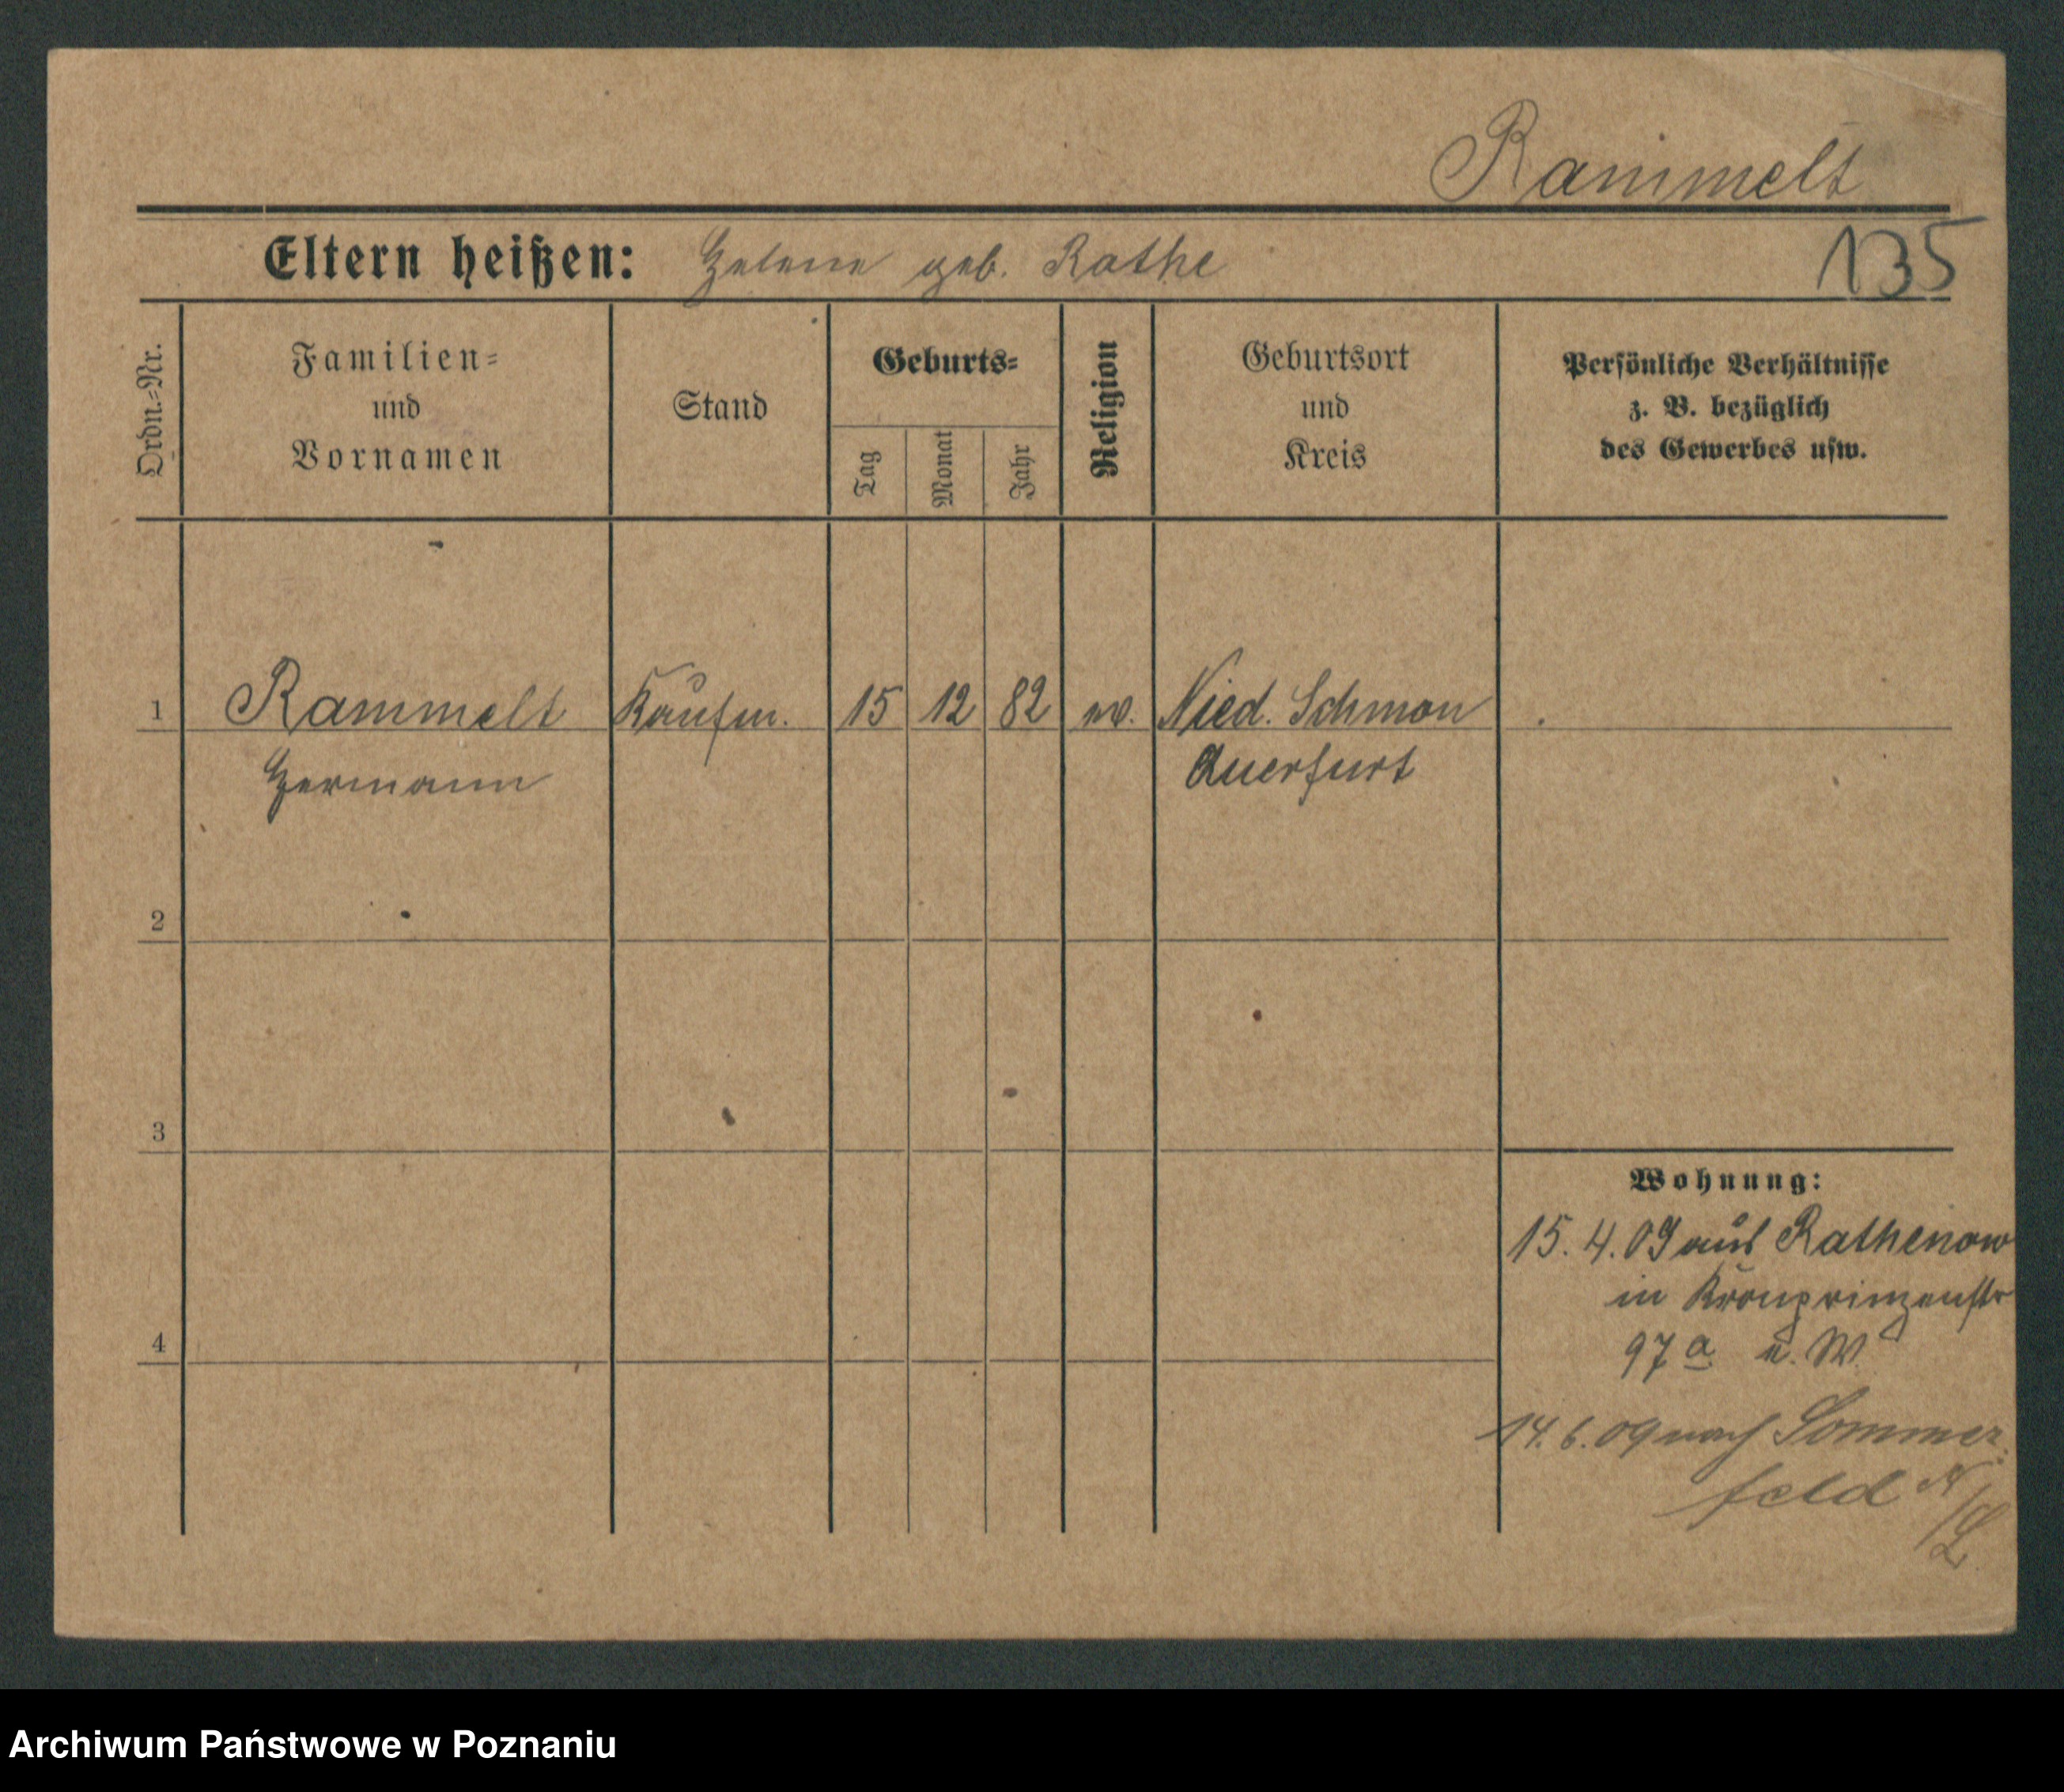 Rammelt
Eltern heißen: Helene geb. Rathe
135
Ordn.-Nr.
Familien-
und
Vornamen
Stand
Geburts-
Tag
Monat
Jahr
Religion
Geburtsort
und
Kreis
Persönliche Verhältnisse
z. B. bezüglich
des Gewerbes usw.
1 Rammelt Kaufm. 15 12 82 ev. Nied. Schmon
Hermann Querfurt
2
3
Wohnung:
15. 4. 09 aus Rathenow
in Kronprinzenstr
4
97a u. W.
14. 6. 09 nach Sommer-
feld N/L
Archiwum Państwowe w Poznaniu